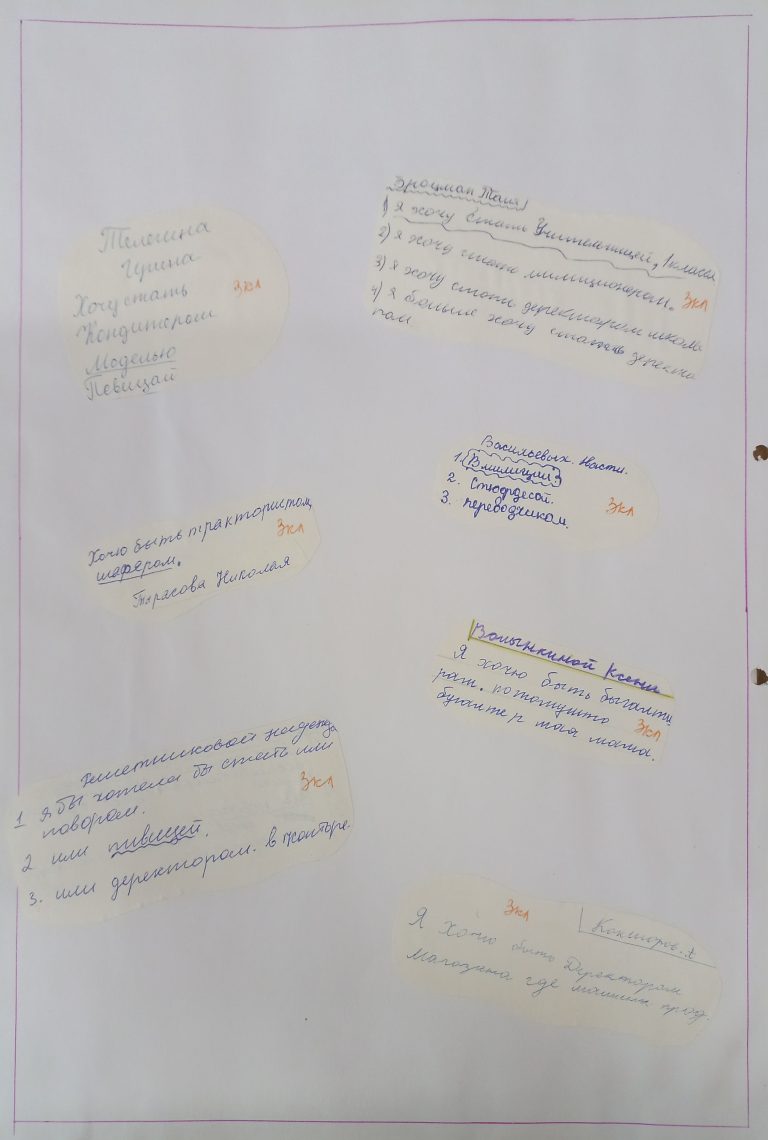 Телегина
Ирина
Хочу стать
Кондитером
Моделью
Певицай
3кл
Эрацман Таня
1) я хочу стать Учительницей, 1класса
2) я хочу стать милиционером.
3) я хочу стать деректором школы
4) я больше хочу стать деректо
ром
3кл
Васильевых. Насти.
1. В милиции
2. Стюрдесой.
3. переводчиком.
3кл
Хочю быть трактористом,
шафёром.
3кл
Тарасова Николая
Волынкиной Ксени
Я хочю быть быгалти
рам. потомушто
бугалтер мая мама.
3кл
надежда
1 я бы хотела бы стать или
поваром.
2 или пивицей.
3. или деректором. в конторе.
3кл
3кл
Кокшоров. А
Я Хочю быть Директором
Магозина где машины прод.